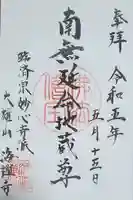 奉拝 令和五年
五月十五日
南無延命地蔵尊
臨済宗妙心寺派
大雄山 海禅寺